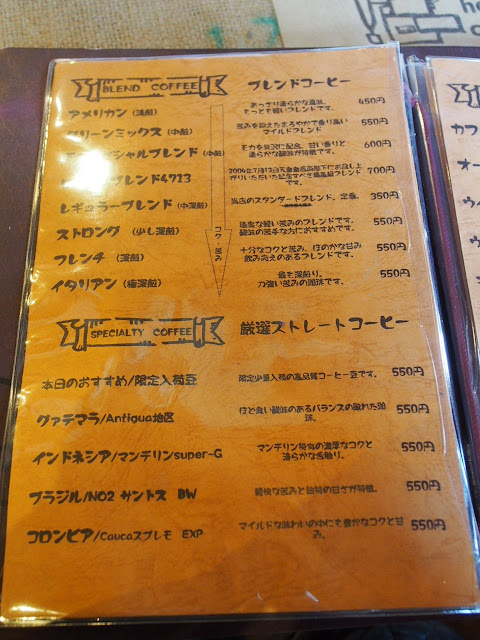 BLEND COFFEE ブレンドコーヒー
アメリカン (浅煎) あっさり柔らかな風味。 450円
もっとも軽いブレンドです。
グリーンミックス (中煎) 苦みを抑えたまろやかで香り高い 550円
マイルドブレンド
シャルブレンド (中煎) モカを贅沢に配合。甘い香りと 600円
柔らかな酸味が特徴です。
ブレンド4713 2004年7月13日 700円
がりいただいた記念すべき最高級ブレンドです。
レギュラーブレンド (中深煎) 当店のスタンダードブレンド。定番。 350円
ストロング (少し深煎) 適度な軽い苦みのブレンドです。 550円
酸味の苦手な方におすすめです。
フレンチ (深煎) 十分なコクと苦み、ほのかな甘み 550円
飲み応えのあるブレンドです。
イタリアン (極深煎) 最も深煎り。 550円
力強い苦みの珈琲です。
コク・苦み
SPECIALTY COFFEE 厳選ストレートコーヒー
本日のおすすめ/限定入荷豆 限定少量入荷の高品質コーヒー豆です。 550円
グァテマラ/Antigua地区 ほど良い酸味のあるバランスの取れた珈 550円
琲。
インドネシア/マンデリンsuper-G マンデリン特有の濃厚なコクと 550円
滑らかな舌触り。
ブラジル/NO2 サントス BW 軽快な苦みと独特の甘さが特徴。 550円
コロンビア/Caucaスプレモ EXP マイルドな味わいの中にも豊かなコクと甘 550円
み。
カフ
オー
ウィ